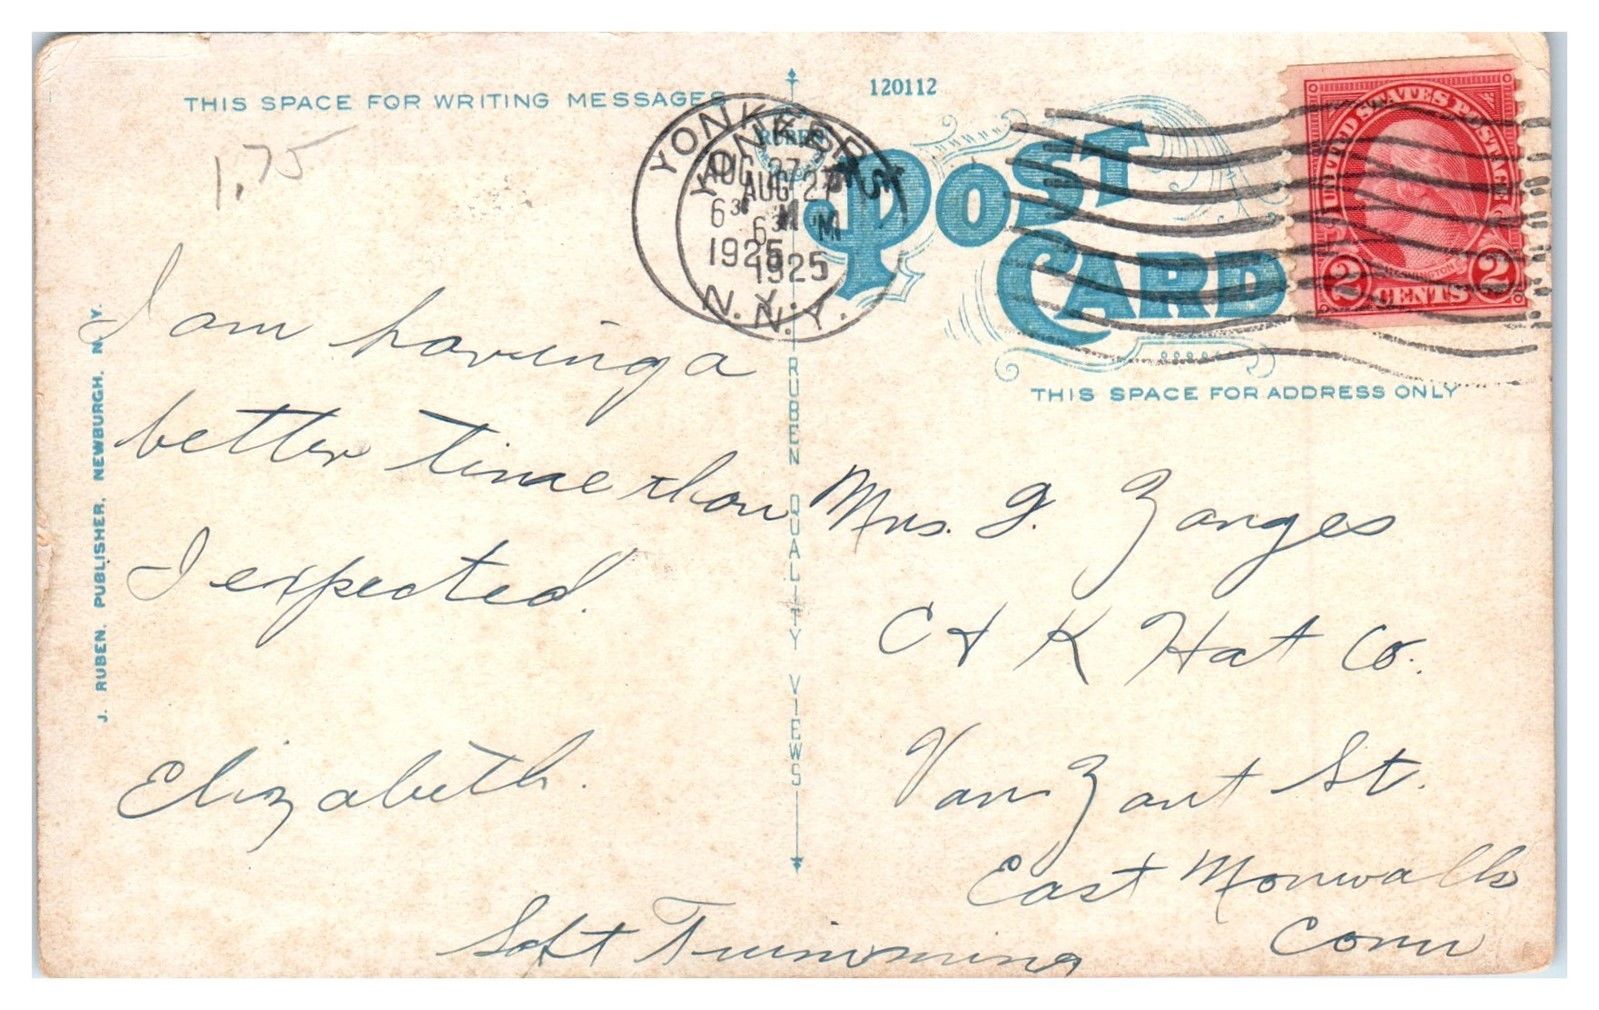 THIS SPACE FOR WRITING MESSAGES
120112
1.75
YONKERS
AUG 27
6 30 PM
1925
N.Y.
YONKERS
AUG 27
6 30 PM
1925
N.Y.
POST
CARD
UNITED STATES POSTAGE
WASHINGTON
2 CENTS 2
THIS SPACE FOR ADDRESS ONLY
I am having a
better time than
I expected.
Elizabeth.
J. RUBEN, PUBLISHER, NEWBURGH, N.Y.
RUBEN QUALITY VIEWS
Mrs. J. Zanges
C & K Hat Co.
Van Zant St.
East Monwalk
Conn
Soft Trimming